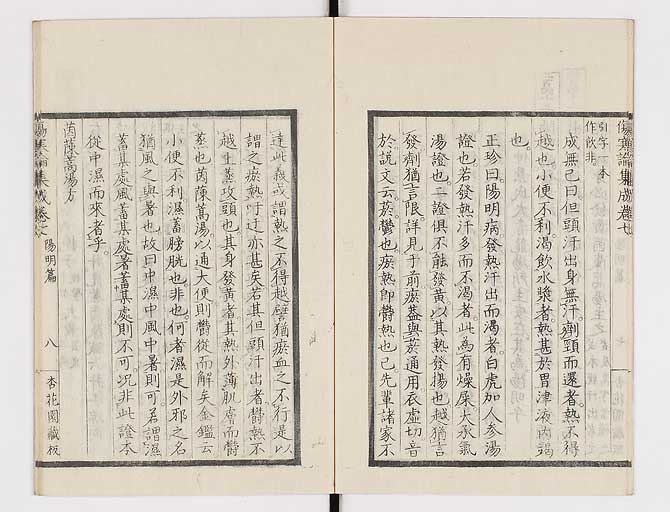 傷寒論集成卷七
引字一本
作飲非
成無已曰但頭汗出身無汗劑頸而還者熱不得
越也小便不利渴飲水漿者熱甚於胃津液內竭
也
正珍曰陽明病發熱汗出而渴者白虎加人參湯
證也若發熱汗多而不渴者此為有燥屎大承氣
湯證也二證俱不能發黃以其熱發揚也越猶言
發劑猶言限詳見于前瘀蓋與菸通用衣虛切音
於說文云菸鬱也瘀熱即鬱熱也已先輩諸家不
達此義或謂熱之不得越譬猶瘀血之不行是以
謂之瘀熱吁迂亦甚矣若其但頭汗出者鬱熱不
越上蒸攻頭也其身發黃者其熱外薄肌膚而鬱
蒸也茵蔯蒿湯以通大便則鬱從而解矣金鑑云
小便不利濕蓄膀胱也非也何者濕是外邪之名
猶風之與暑也故曰中濕中風中暑則可若謂濕
蓄其處風蓄其處暑蓄其處則不可況非此證本
從中濕而來者乎
茵蔯蒿湯方
傷寒論集成卷七
陽明篇
八
杏花園藏板